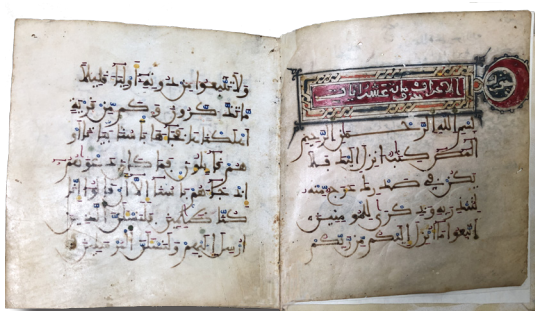 الاعراف
بسم الله الرحمن الرحيم
المص كتب انزل اليك فلا
يكن في صدرك حرج منه
لتنذر به وذكرى للمومنين
اتبعوا ما انزل اليكم من ربكم
ولا تتبعوا من دونه اوليا قليلا
ما تذكرون وكم من قرية
اهلكنها فجاها باسنا بيتا او
هم قايلون فما كان دعويهم
اذ جاهم باسنا الا ان قالوا انا
كنا ظلمين فلنسئلن الذين
ارسل اليهم ولنسئلن المرسلين